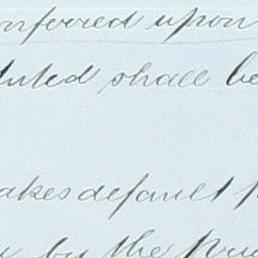 nferred upon
luted shall be
akes default
by the